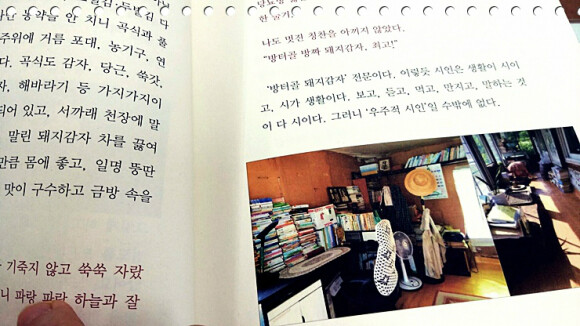 난 농약을 안 치니 곡식과 풀
주위에 거름 포대, 농기구, 연
다. 곡식도 감자, 당근, 쑥갓,
자, 해바라기 등 가지가지이
되어 있고, 서까래 천장에 말
말린 돼지감자 차를 끓여
만큼 몸에 좋고, 일명 뚱딴
맛이 구수하고 금방 속을
기죽지 않고 쑥쑥 자랐
니 파랑 파랑 하늘과 잘
나도 멋진 칭찬을 아끼지 않았다.
“방터골 방짜 돼지감자, 최고!”
‘방터골 돼지감자’ 전문이다. 이렇듯 시인은 생활이 시이
고, 시가 생활이다. 보고, 듣고, 먹고, 만지고, 말하는 것
이 다 시이다. 그러니 ‘우주적 시인’일 수밖에 없다.